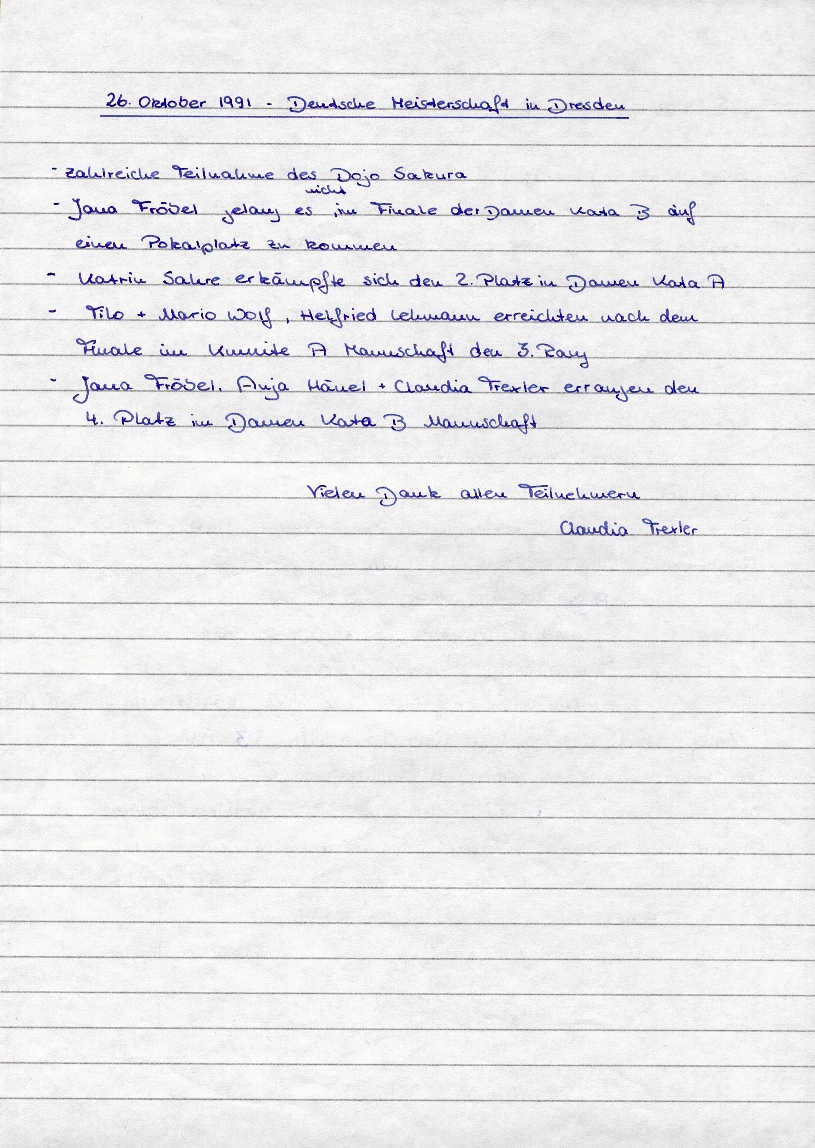 26. Oktober 1991 - Deutsche Meisterschaft in Dresden
- zahlreiche Teilnahme des Dojo Sakura
nicht
- Jana Fröbel gelang es , im Finale der Damen Kata B auf
einen Pokalplatz zu kommen
- Katrin Sahre erkämpfte sich den 2. Platz in Damen Kata A
- Tilo + Mario Wolf, Helfried Lehmann erreichten nach dem
Finale im Kumite A Mannschaft den 3. Rang
- Jana Fröbel. Anja Hänel + Claudia Trexler errangen den
4. Platz im Damen Kata B Mannschaft
Vielen Dank allen Teilnehmern
Claudia Trexler